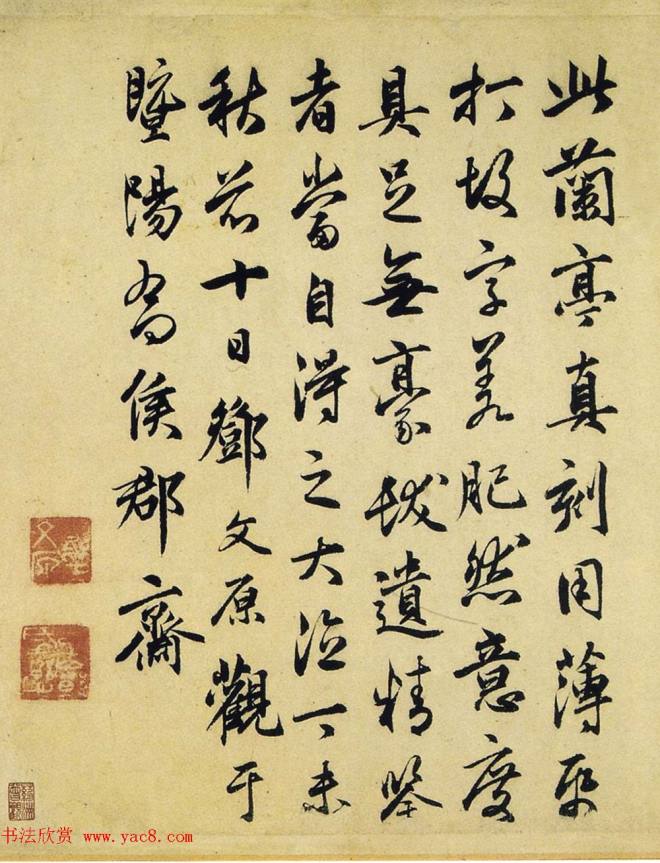 此蘭亭真刻用薄帋
打故字差肥然意度
具足無豪髮遺精鑒
者當自得之大德丁未
秋前十日鄧文原觀于
暨陽喬侯郡齋
鄧文原
书法欣赏 www.yac8.com